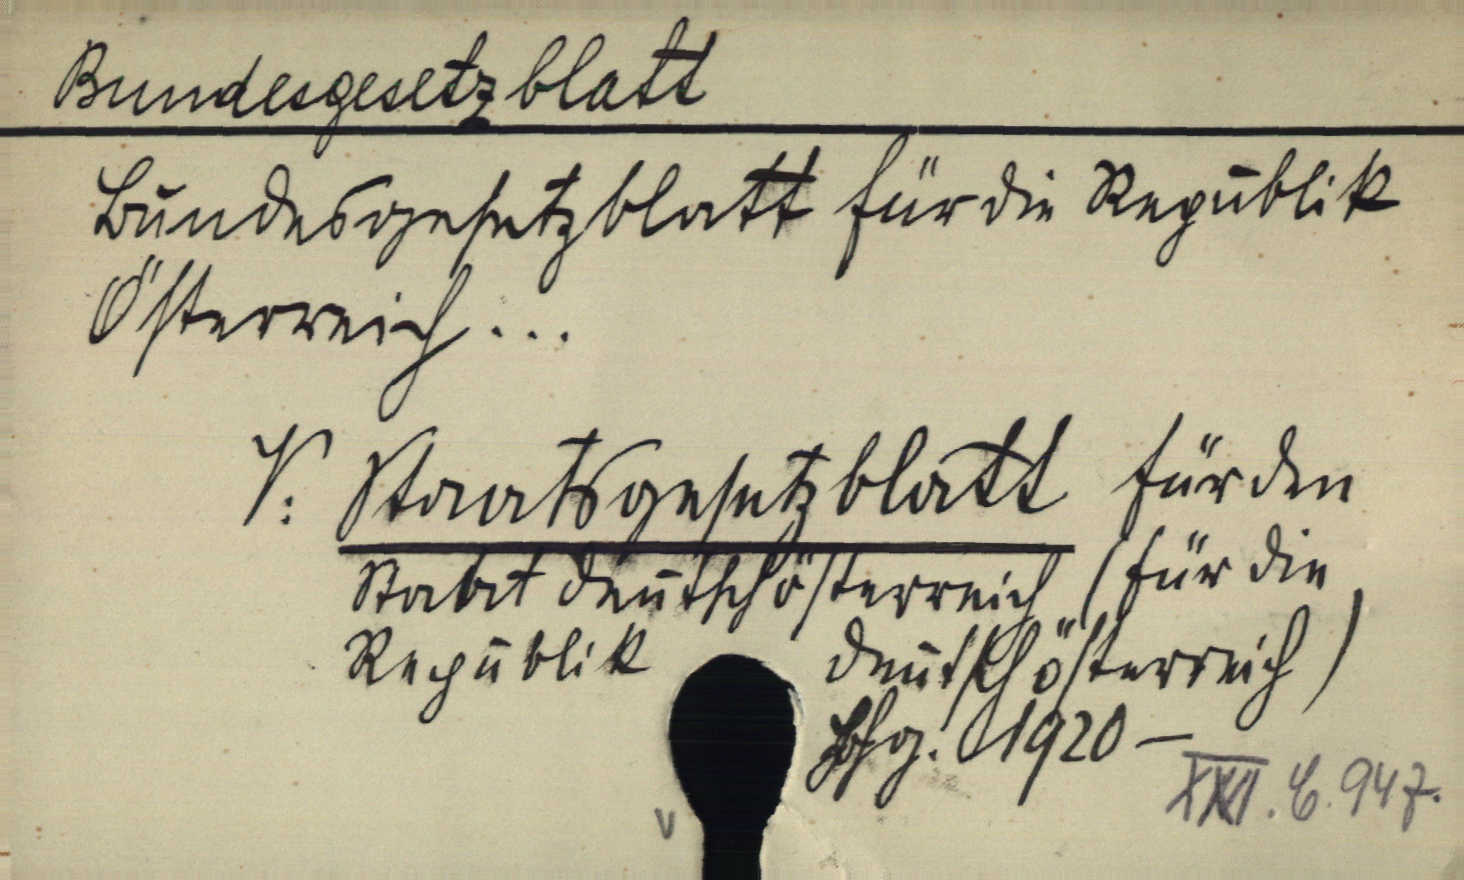 Bundesgesetzblatt
Bundesgesetzblatt für die Republik
Österreich ...
V: Staatsgesetzblatt für den
Staat deutschösterreich (für die
Republik deutschösterreich)
Jhg. 1920 –
XXII. C. 947.
v